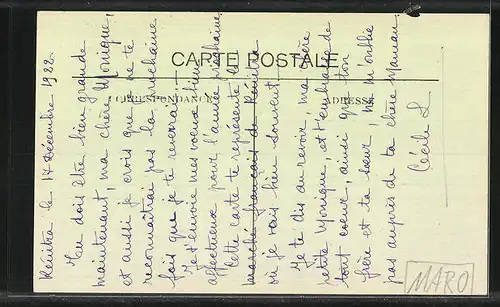 CARTE POSTALE
CORRESPONDANCE
ADRESSE
Kénitra le 17 décembre 1922.
Tu dois être bien grande
maintenant, ma chère Monique,
et aussi je crois que je ne te
reconnaîtrai pas la prochaine
fois que je te reverrai.
Je t'envoie mes voeux bien
affectueux pour l'année prochaine
Cette carte te représente le
marché français de Kénitra
où je vais bien souvent.
Je te dis au revoir, ma chère
petite Monique, et t'embrasse de
tout coeur, ainsi que ton
frère et ta sœur, ne m'oublie
pas auprès de ta chère Maman.
Cécile L
MARO